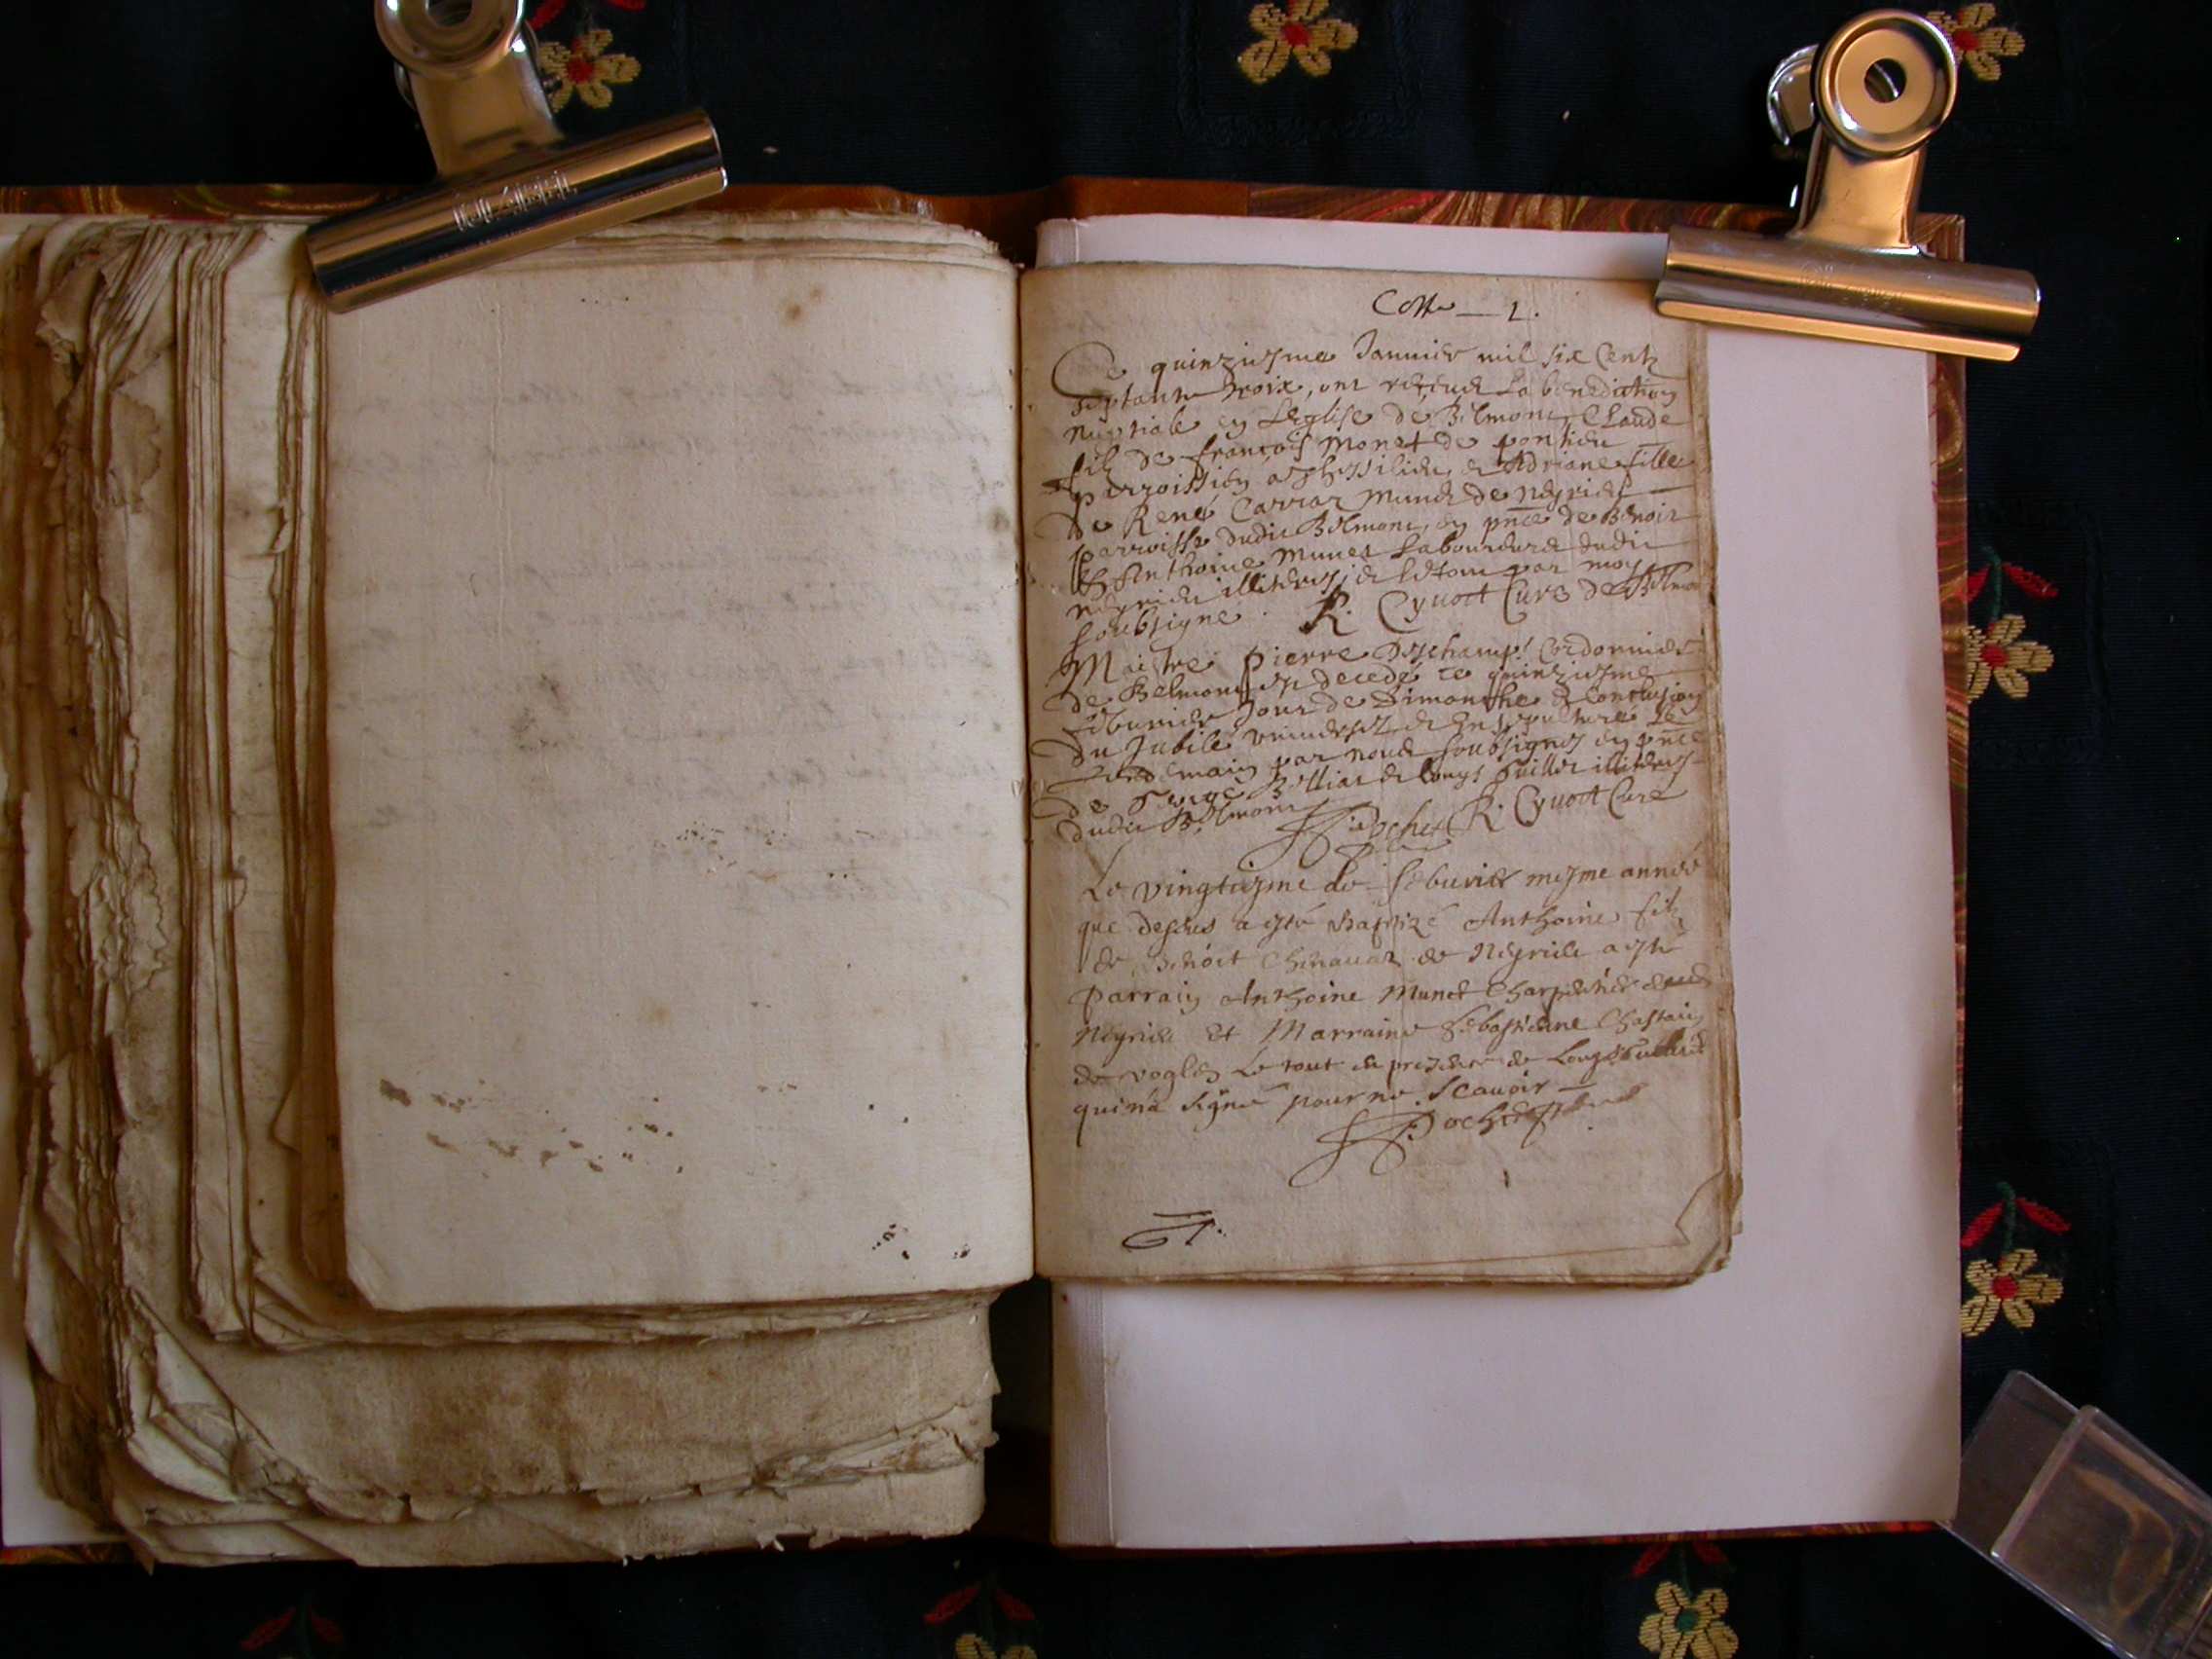 Cotte — 1.
Ce quinziesme Januier mil six Centz
septante troix, ont receue La benediction
nuptiale en Leglise de Belmont Claude
filz de françois Monet de pontieu
parroissien & Adriane fille
de René Carrar Munet de neyrieu
parroisse dudit Belmont, en pñce de Benoit
& Anthoine Munet Laboureurs dudit
neyrieu illiteres, & le tout par moy
soubsigne. R. Cyuoct Cure de Belmont
Maistre pierre Deschamps Cordonnier
de Belmont est decedé ce quinziesme
feburier Jour de Dimanche & Conclusion
du Jubilé vniuersel & Ensepulture Le
Lendemain par nous soubsignes en pñce
de Belliat & Louys Guillet illiteres
dudit Belmont Pochet R. Cyuoct Cure
Le vingtiesme de feburier mesme année
que dessus a esté Baptizé Anthoine filz
de Benoit Chenauaz de Neyrieu a esté
Parrain Anthoine Munet Charpentier
Neyrieu Et Marraine Sebastienne Chastain
de voglen Le tout en presence de Louys Guillet
qui n'a signé pour ne Scauoir —
Pochet